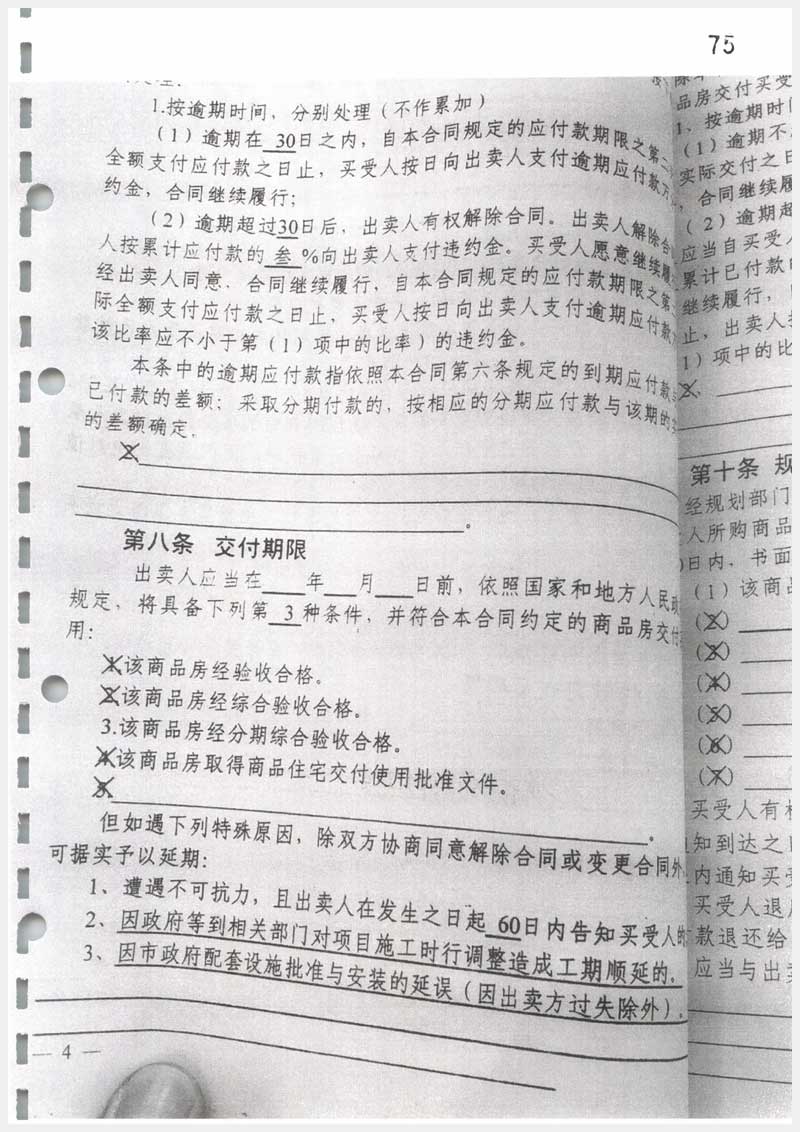 75
1.按逾期时间，分别处理（不作累加）
（1）逾期在 30日之内，自本合同规定的应付款期限之第二
全额支付应付款之日止，买受人按日向出卖人支付逾期应付款万
约金，合同继续履行；
（2）逾期超过30日后，出卖人有权解除合同。出卖人解除合
人按累计应付款的 叁 %向出卖人支付违约金。买受人愿意继续履
经出卖人同意，合同继续履行，自本合同规定的应付款期限之第
际全额支付应付款之日止，买受人按日向出卖人支付逾期应付款
该比率应不小于第（1）项中的比率）的违约金。
本条中的逾期应付款指依照本合同第六条规定的到期应付款
已付款的差额；采取分期付款的，按相应的分期应付款与该期的
的差额确定。
2.
第八条 交付期限
出卖人应当在 年 月 日前，依照国家和地方人民政
规定，将具备下列第 3 种条件，并符合本合同约定的商品房交付
用：
1.该商品房经验收合格。
2.该商品房经综合验收合格。
3.该商品房经分期综合验收合格。
4.该商品房取得商品住宅交付使用批准文件。
5.
但如遇下列特殊原因，除双方协商同意解除合同或变更合同外
可据实予以延期：
1、遭遇不可抗力，且出卖人在发生之日起 60日内告知买受人的
2、因政府等到相关部门对项目施工时行调整造成工期顺延的.
3、因市政府配套设施批准与安装的延误（因出卖方过失除外）.
— 4 —
品房交付买受
1、按逾期时
（1）逾期不
实际交付之日
，合同继续履
（2）逾期超
应当自买受人
累计已付款
继续履行，
止，出卖人
1）项中的比
2.
第十条 规
经规划部门
人所购商品
日内，书面
（1）该商品
（2）
（3）
（4）
（5）
（6）
（7）
买受人有
知到达之日
内通知买受
买受人退
款退还给
应当与出卖